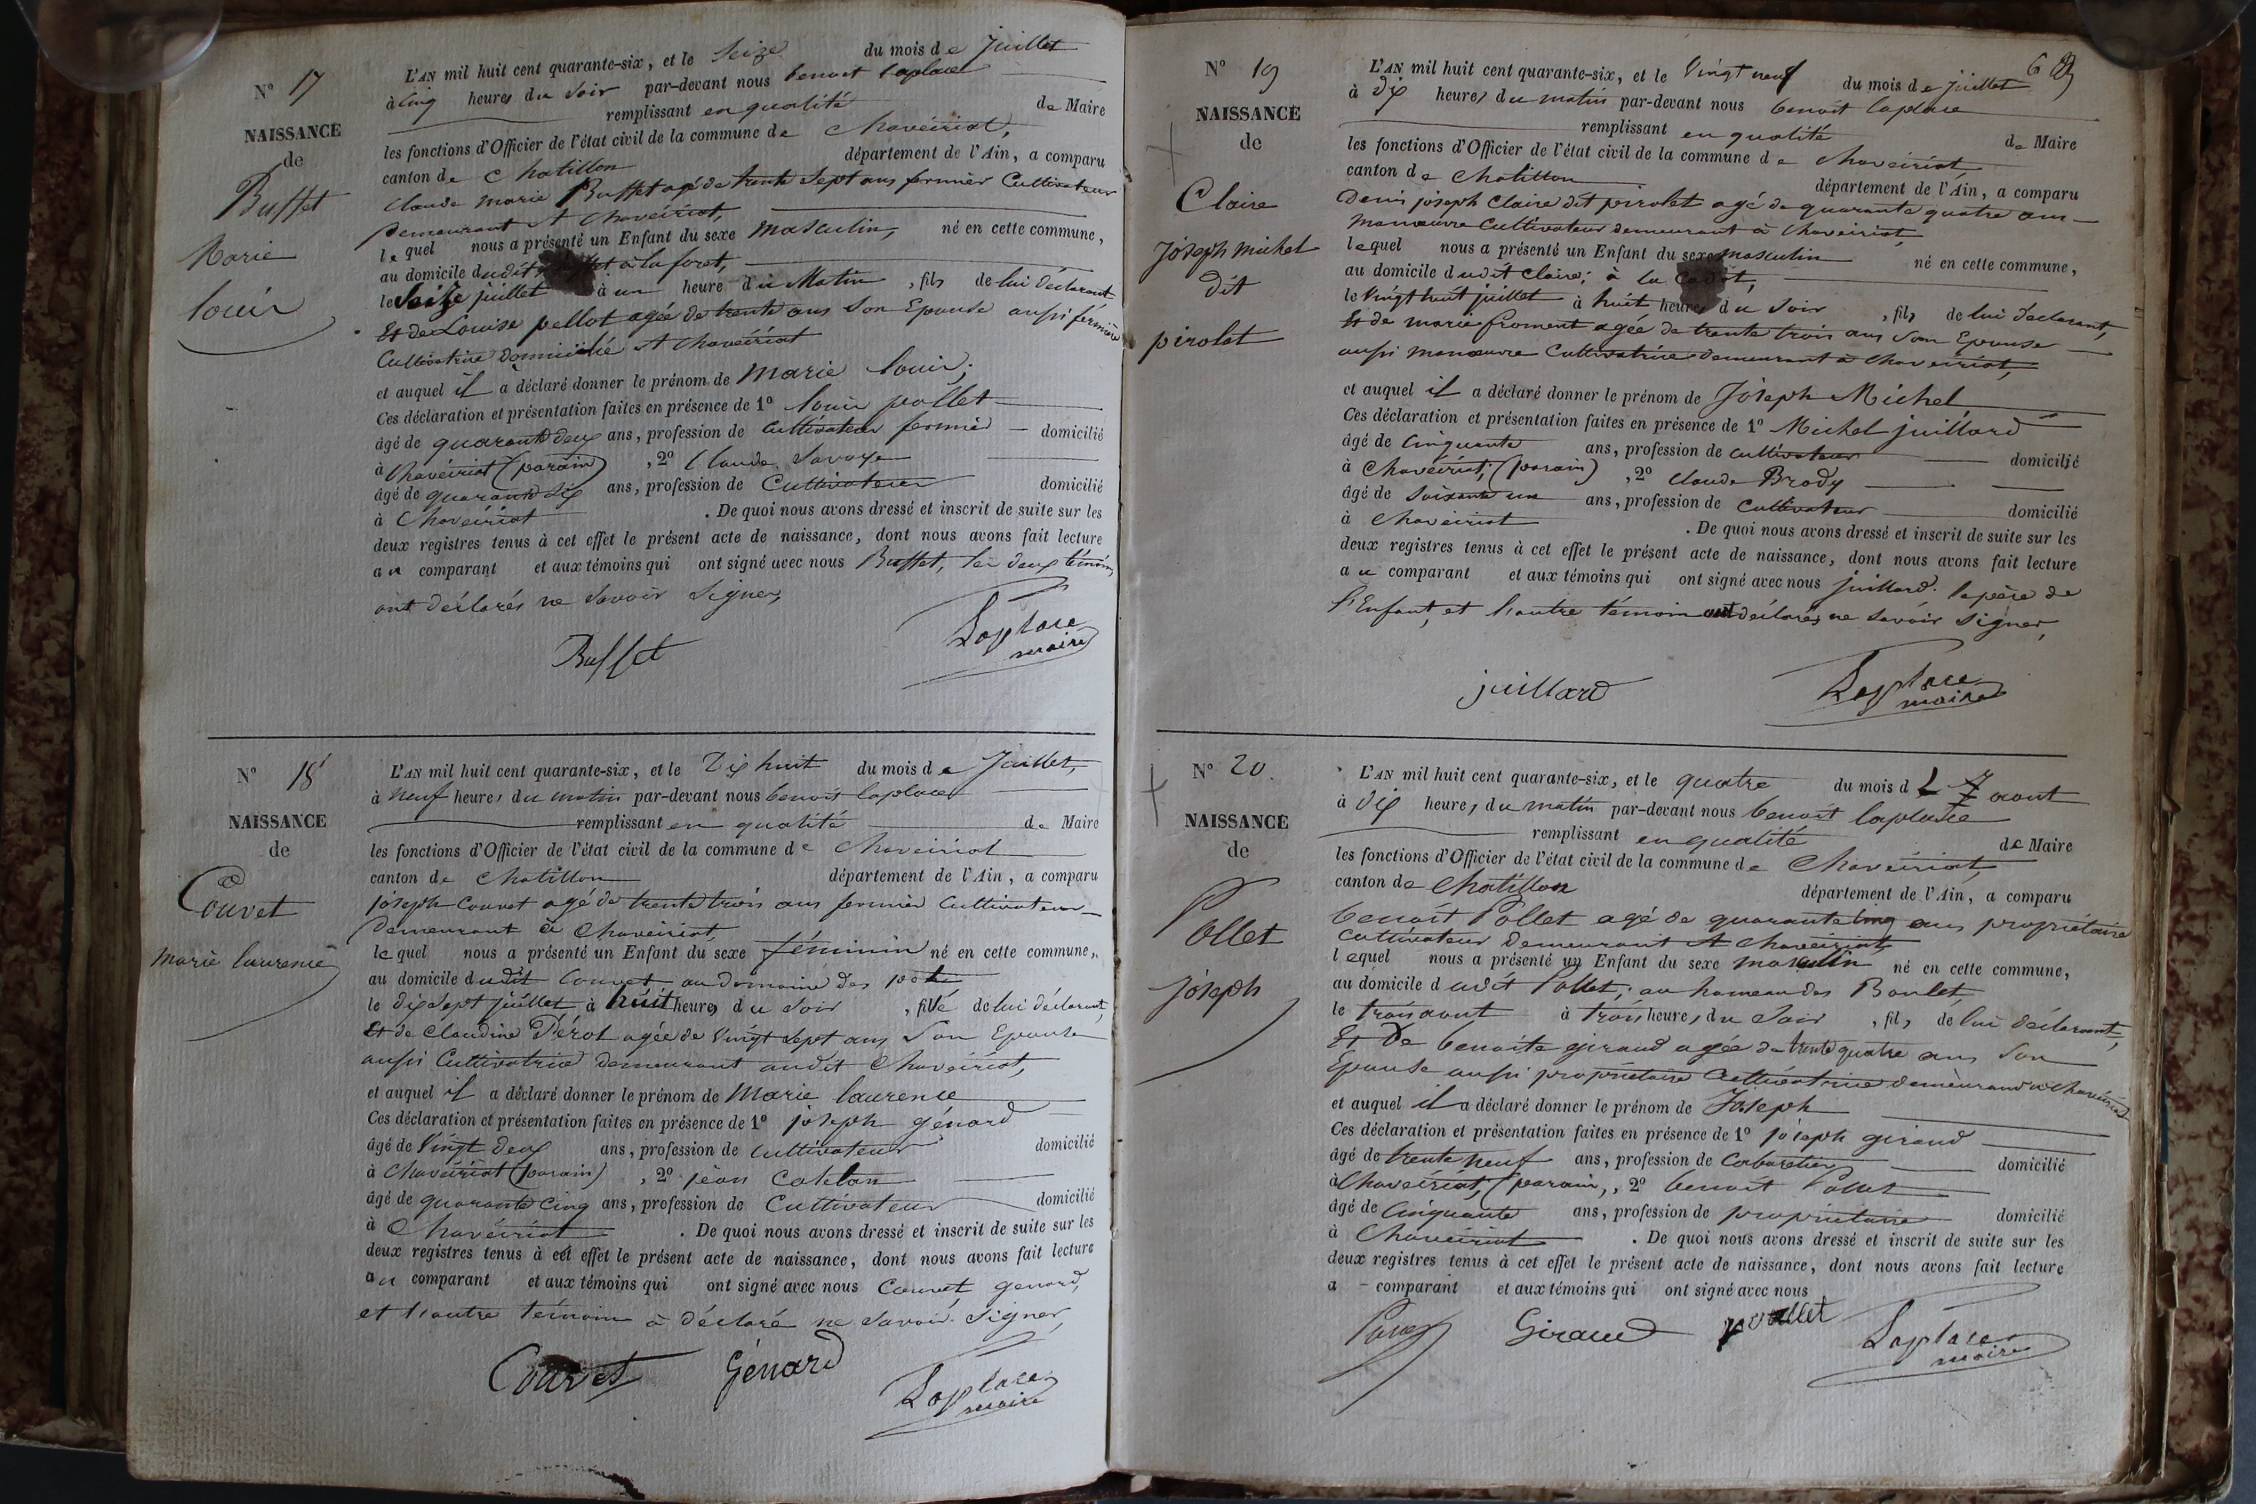 N° 17
NAISSANCE
de
Buffet
Marie
louis
L'AN mil huit cent quarante-six, et le Seize du mois de Juillet
à Cinq heures du Soir par-devant nous benoit laplace
remplissant en qualité de Maire
les fonctions d'Officier de l'état civil de la commune de Chaveïriat,
canton de Chatillon département de l'Ain, a comparu
Claude Marie Buffet agé de trente Sept ans fermier Cultivateur
Demeurant A Chavéiriat,
lequel nous a présenté un Enfant du sexe Masculin, né en cette commune,
au domicile dudit à la foret,
le Seize juillet à un heure du Matin, fils de lui déclarant
Et de Louise pellot agée de trente ans Son Epouse aussi fermière
Cultivatrice domicilié A Chavéiriat
et auquel il a déclaré donner le prénom de Marie louis,
Ces déclaration et présentation faites en présence de 1° louis pollet
âgé de quarante deux ans, profession de Cultivateur fermier domicilié
à Chavéiriat (parain), 2° Claude Savoye
âgé de quarante six ans, profession de Cultivateur domicilié
à Chavéiriat. De quoi nous avons dressé et inscrit de suite sur les
deux registres tenus à cet effet le présent acte de naissance, dont nous avons fait lecture
au comparant et aux témoins qui ont signé avec nous Buffet, les deux témoins
ont déclarés ne Savoir Signer,
Buffet
Laplace
maire
N° 18
NAISSANCE
de
Couvet
marie laurence
L'AN mil huit cent quarante-six, et le Dix huit du mois de Juillet,
à neuf heures du matin par-devant nous benoit laplace
remplissant en qualité de Maire
les fonctions d'Officier de l'état civil de la commune de Chaveiriat
canton de Chatillon département de l'Ain, a comparu
joseph Couvet agé de trente trois ans fermier Cultivateur
Demeurant à Chaveiriat,
lequel nous a présenté un Enfant du sexe féminin né en cette commune,
au domicile dudit Couvet au domaine des
le dix sept juillet, à huit heures du Soir, fille de lui déclarant,
Et de Claudine Pérot agée de vingt sept ans Son Epouse
aussi Cultivatrice demeurant audit Chavéiriat,
et auquel il a déclaré donner le prénom de Marie laurence
Ces déclaration et présentation faites en présence de 1° joseph génard
âgé de Vingt deux ans, profession de cultivateur domicilié
à Chavéiriat (parain), 2° jean
âgé de quarante cinq ans, profession de Cultivateur domicilié
à Chavéiriat. De quoi nous avons dressé et inscrit de suite sur les
deux registres tenus à cet effet le présent acte de naissance, dont nous avons fait lecture
au comparant et aux témoins qui ont signé avec nous Couvet génard,
et l'autre témoin à déclaré ne Savoir Signer,
Couvet Génard
Laplace
maire
N° 19
NAISSANCE
de
Claire
Joseph michel
dit
pirolet
L'AN mil huit cent quarante-six, et le Vingt neuf du mois de juillet
à dix heures du matin par-devant nous benoit laplace
remplissant en qualité de Maire
les fonctions d'Officier de l'état civil de la commune de Chaveiriat
canton de Chatillon département de l'Ain, a comparu
Denis joseph Claire dit pirolet agé de quarante quatre ans
manœuvre Cultivateur demeurant à Chaveiriat,
lequel nous a présenté un Enfant du sexe masculin né en cette commune,
au domicile dudit Claire, à la
le vingt huit juillet à huit heures du Soir, fils de lui déclarant,
Et de marie froment agée de trente trois ans Son Epouse
aussi manœuvre Cultivatrice demeurant à Chaveiriat,
et auquel il a déclaré donner le prénom de Joseph Michel
Ces déclaration et présentation faites en présence de 1° Michel juillard
âgé de Cinquante ans, profession de cultivateur domicilié
à Chavéiriat, (parain), 2° Claude Brady
âgé de Soixante un ans, profession de Cultivateur domicilié
à Chaveiriat. De quoi nous avons dressé et inscrit de suite sur les
deux registres tenus à cet effet le présent acte de naissance, dont nous avons fait lecture
au comparant et aux témoins qui ont signé avec nous juillard. le père de
l'Enfant, et l'autre témoin ont déclarés ne Savoir Signer,
juillard
Laplace
maire
N° 20.
NAISSANCE
de
Pollet
joseph
L'AN mil huit cent quarante-six, et le quatre du mois d aout
à dix heures du matin par-devant nous benoit laplace
remplissant en qualité de Maire
les fonctions d'Officier de l'état civil de la commune de Chaveiriat,
canton de Chatillon département de l'Ain, a comparu
benoit Pollet agé de quarante cinq ans propriétaire
Cultivateur Demeurant A Chaveiriat,
lequel nous a présenté un Enfant du sexe masculin né en cette commune,
au domicile dudit Pollet, au hameau des Boulet,
le trois aout à trois heures du Soir, fils de lui déclarant,
Et De benoite giraud agée de trente quatre ans Son
Epouse aussi propriétaire Cultivatrice demeurand à Chavéiriat
et auquel il a déclaré donner le prénom de Joseph
Ces déclaration et présentation faites en présence de 1° joseph giraud
âgé de trente neuf ans, profession de Cabaretier domicilié
à Chavéiriat, (parain), 2° benoit Pollet
âgé de Cinquante ans, profession de propriétaire domicilié
à Chaveiriat. De quoi nous avons dressé et inscrit de suite sur les
deux registres tenus à cet effet le présent acte de naissance, dont nous avons fait lecture
a comparant et aux témoins qui ont signé avec nous
Giraud pollet
Laplace
maire